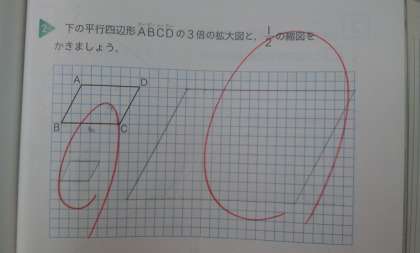 2 下の平行四辺形ABCDの3倍の拡大図と，1/2の縮図を
かきましょう。
A D
B C